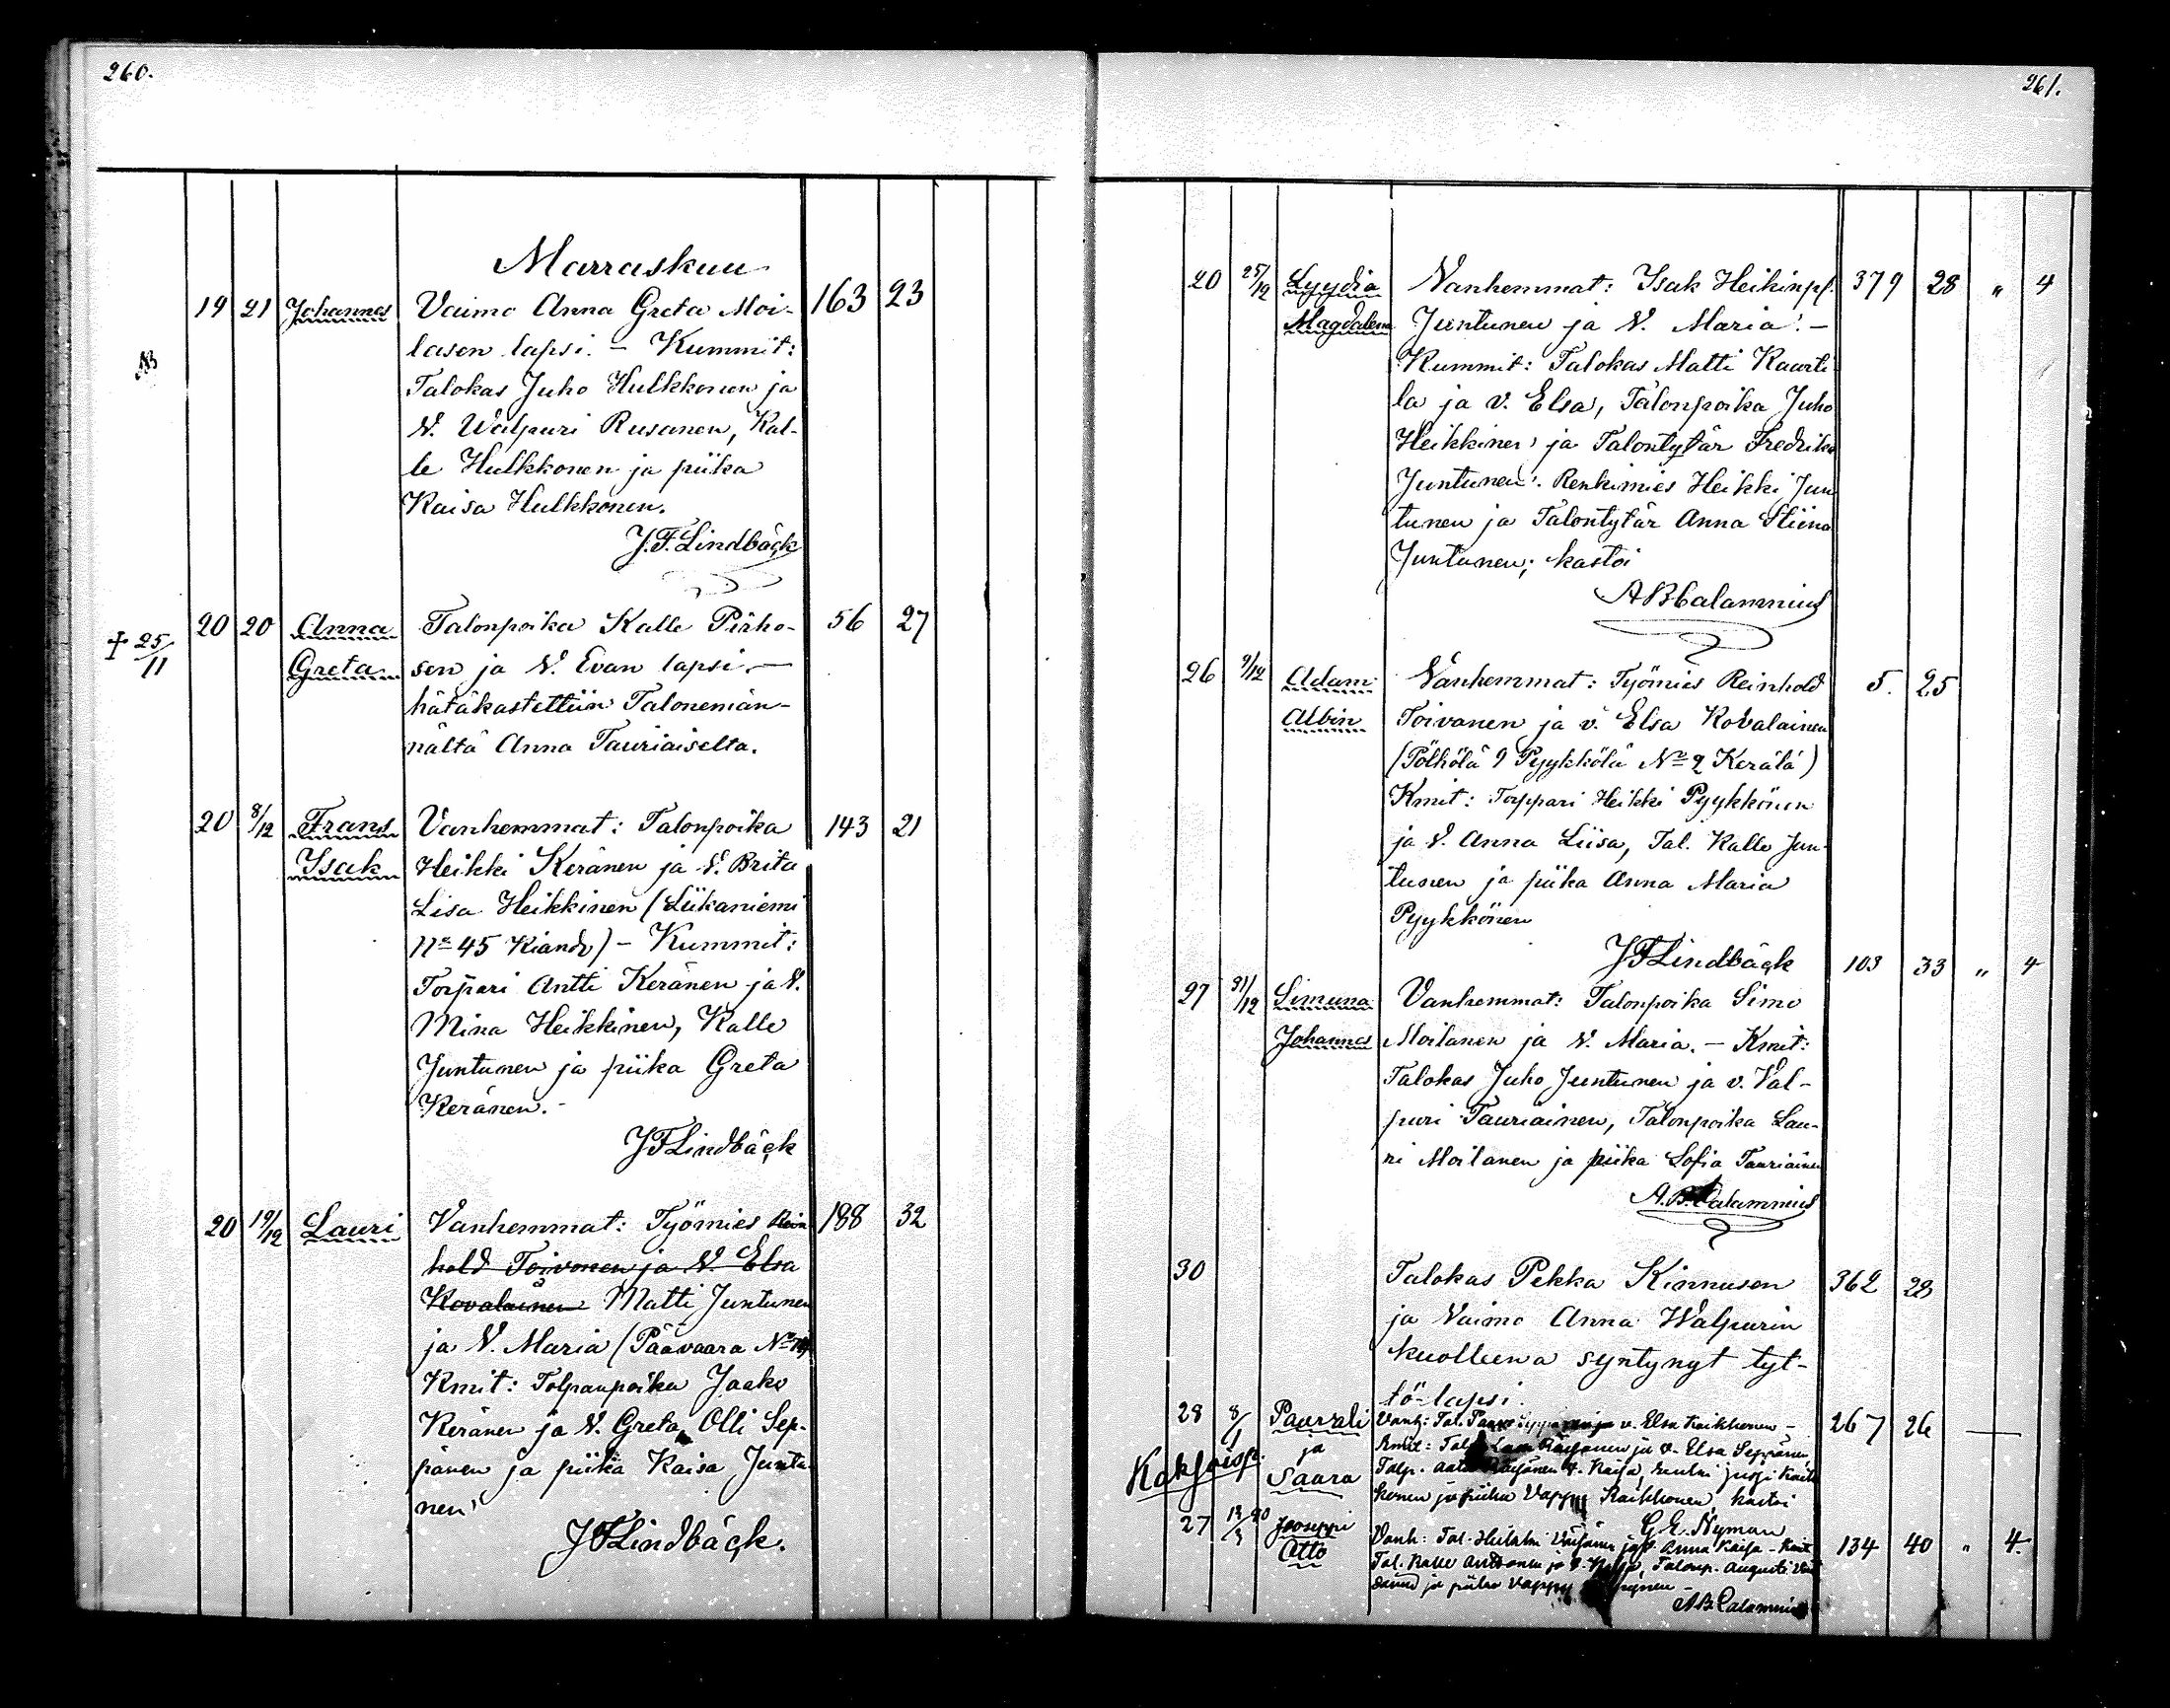 260.
Marraskuu
19 21 Johannes Vaimo Anna Greta Moi- 163 23
lasen lapsi. – Kummit:
Talokas Juho Hulkkonen ja
V. Walpuri Rusanen, Kal-
le Hulkkonen ja piika
Kaisa Hulkkonen.
J.F. Lindbäck
20 20 Anna Talonpoika Kalle Pirho- 56 27
† 25/11 Greta sen ja V. Evan lapsi. –
hätäkastettiin Talonemän-
nältä Anna Tauriaiselta.
20 8/12 Frans Vanhemmat: Talonpoika 143 21
Isak Heikki Keränen ja V. Brita
Lisa Heikkinen (Liikaniemi
No 45 Kiando) – Kummit:
Torpari Antti Keränen ja V.
Mina Heikkinen, Kalle
Juntunen ja piika Greta
Keränen. –
JFLindbäck
20 19/12 Lauri Vanhemmat: Työmies Rein 188 32
hold Toivonen ja V. Elsa
Kovalainen Matti Juntunen
ja V. Maria (Päävaara No
Kmit: Tolpanpoika Jaako
Keränen ja V. Greta, Olli Sep-
pänen ja piika Kaisa Juntu
nen
JFLindbäck.
261.
20 25/12 Lyydia Vanhemmat: Isak Heikinp. 379 28 " 4
Magdalena Juntunen ja V. Maria. –
Kummit: Talokas Matti Kaurti
la ja v. Elsa, Talonpoika Juho
Heikkinen ja Talontytär Fredrika
Juntunen. Renkimies Heikki Jun
tunen ja Talontytär Anna Stiina
Juntunen; kastoi
ABCalamnius
26 9/12 Adam Vanhemmat: Työmies Reinhold 5. 25
Albin Toivanen ja v. Elsa Kovalainen
(Pölhölä 9 Pyykkölä No 2 Kerälä)
Kmit: Torppari Heikki Pyykkönen
ja V. Anna Liisa, Tal. Kalle Jun-
tunen ja piika Anna Maria
Pyykkönen
JFLindbäck
27 31/12 Simuna Vanhemmat: Talonpoika Simo 103 33 " 4
Johannes Moilanen ja V. Maria. – Kmit:
Talokas Juho Juntunen ja v. Val-
puri Tauriainen, Talonpoika Lau-
ri Moilanen ja piika Sofia Tauriainen
A.B.Calamnius
30 Talokas Pekka Kinnusen 362 28
ja Vaimo Anna Walpurin
kuolleena syntynyt tyt-
tö-lapsi.
28 8/1 Paavali Vanh: Tal. v. Elsa Keikkonen – 267 26 —
Kaksoisp. ja Kmit: Talp. Räisänen ja v. Elsa Seppänen,
Saara Talp. V. Kaisa,
ja piika Vappu Raikkonen, kastoi
G.E. Nyman
27 Jooseppi Vanh: Tal. Väisänen ja V. Anna Kaisa – Kmit 134 40 " 4
Otto Tal. Kalle ja V. Talonp.
ja piika Vappu
AB Calamnius